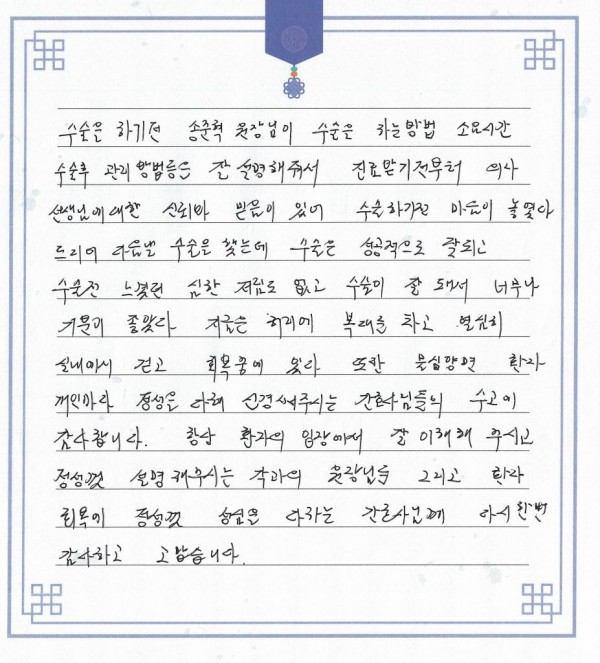 수술은 하기전 송준혁 원장님이 수술은 하는방법 소요시간
수술후 관리 방법등을 잘 설명해줘서 진료받기전부터 의사
선생님에 대한 신뢰와 믿음이 있어 수술하기전 마음이 놓였다
드디어 다음날 수술을 했는데 수술은 성공적으로 잘되고
수술전 느꼈던 심한 저림도 없고 수술이 잘 돼서 너무나
기분이 좋았다. 지금은 허리에 복대를 차고 열심히
실내에서 걷고 회복중에 있다 또한 문심양면 환자
개인마다 정성을 다해 신경써주시는 간호사님들의 수고에
감사합니다. 항상 환자의 입장에서 잘 이해해 주시고
정성껏 설명해주시는 각과의 원장님들 그리고 환자
회복에 정성껏 성심을 다하는 간호사님께 다시한번
감사하고 고맙습니다.